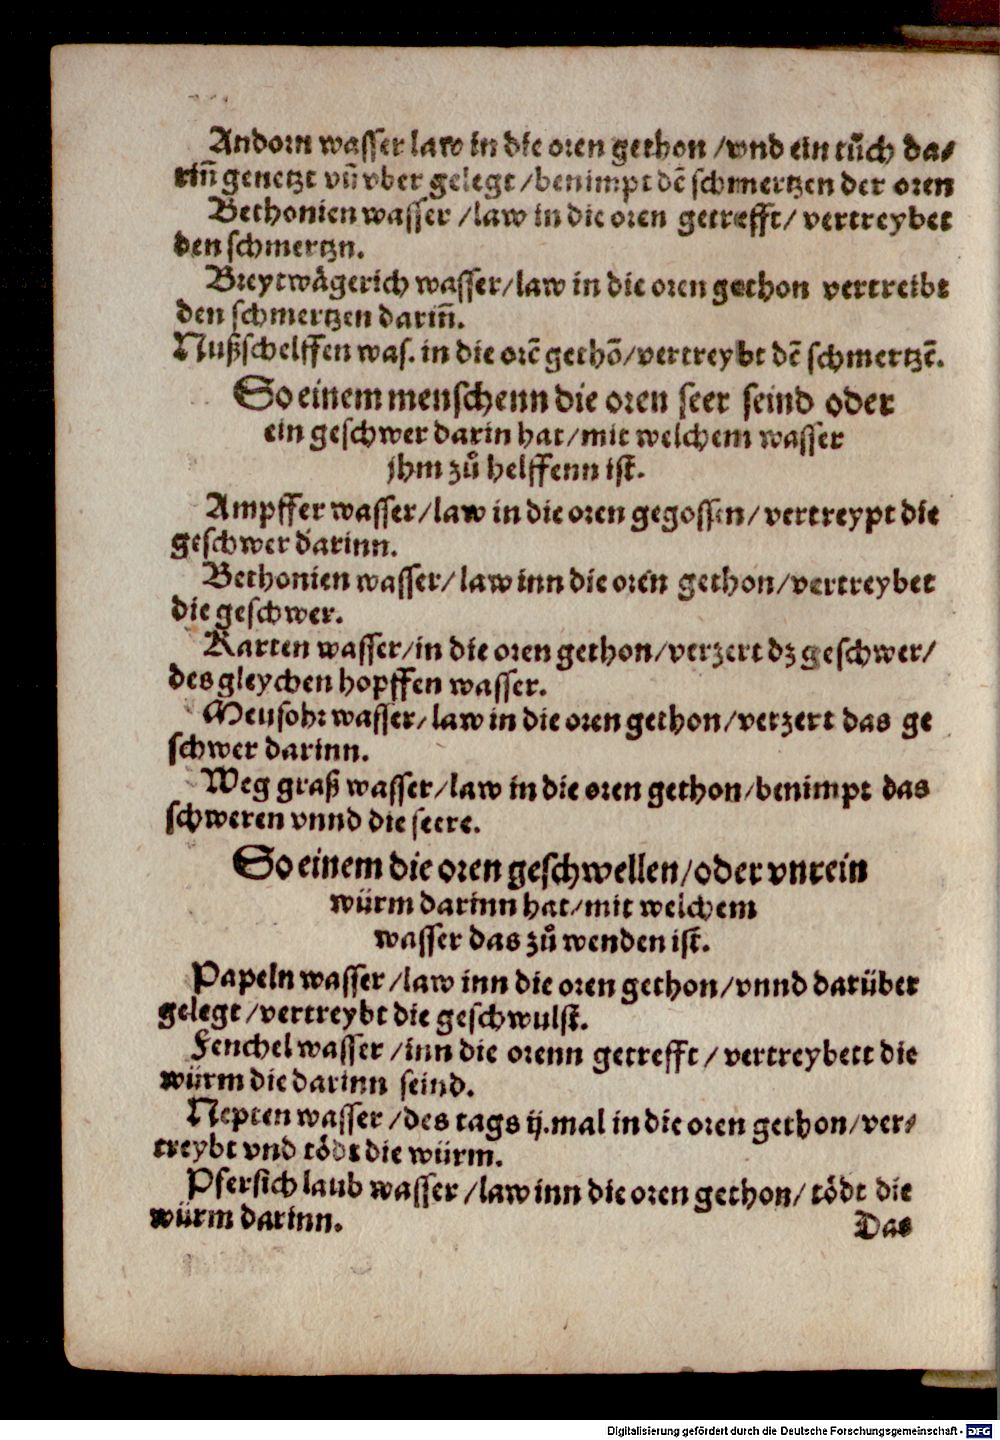 Andorn wasser law in die oren gethon /vnd ein tůch da⸗
rin̄ genetzt vn̄ vber gelegt /benimpt dē schmertzen der oren
Bethonien wasser /law in die oren getrefft/ vertreybet
den schmertzn.
Breytwågerich wasser/law in die oren gethon vertreibt
den schmertzen darin̄.
Nußschelffen was. in die orē gethō/vertreybt dē schmertzē.
So einem menschenn die oren seer seind oder
ein geschwer darin hat/mit welchem wasser
jhm zů helffenn ist.
Ampffer wasser/law in die oren gegossen/vertreypt die
geschwer darinn.
Bethonien wasser/law inn die oren gethon/vertreybet
die geschwer.
Karten wasser/in die oren gethon/verzert dz geschwer/
des gleychen hopffen wasser.
Meusohr wasser/law in die oren gethon/verzert das ge
schwer darinn.
Weg graß wasser/law in die oren gethon/benimpt das
schweren vnnd die seere.
So einem die oren geschwellen/oder vnrein
würm darinn hat/mit welchem
wasser das zů wenden ist.
Papeln wasser/law inn die oren gethon/vnnd darüber
gelegt/vertreybt die geschwulst.
Fenchel wasser /inn die orenn getrefft/ vertreybett die
würm die darinn seind.
Nepten wasser/des tags ij.mal in die oren gethon/ver⸗
treybt vnd tödt die würm.
Pfersich laub wasser/law inn die oren gethon/ tödt die
würm darinn.
Das
Digitalisierung gefördert durch die Deutsche Forschungsgemeinschaft - DFG